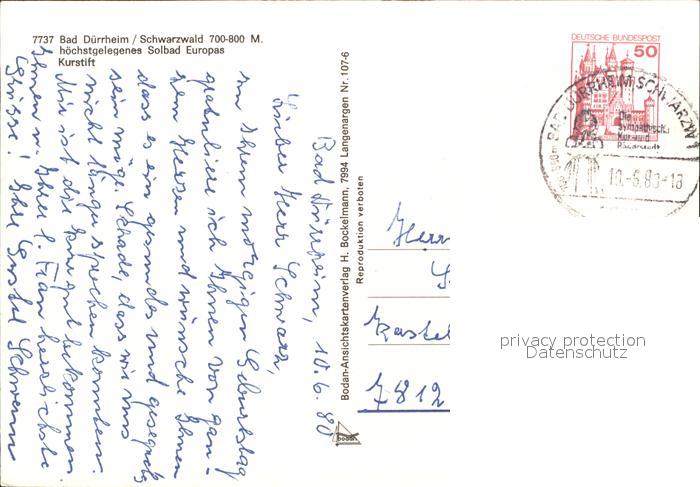 7737 Bad Dürrheim / Schwarzwald 700-800 M.
höchstgelegenes Solbad Europas
Kurstift
Bad Dürrheim, 10.6.80
Lieber Herr Schwarz,
zu Ihrem morgigen Geburtstag
gratuliere ich Ihnen von gan-
zem Herzen und wünsche Ihnen
dass es ein gesundes und gesegnetes
sein möge. Schade, dass wir uns
nicht länger sprechen konnten.
Mir ist die Kur gut bekommen.
Ihnen u. Ihrer l. Frau herzlichste
Grüsse! Ihre
Bodan-Ansichtskartenverlag H. Bockelmann, 7994 Langenargen Nr. 107-6
Reproduktion verboten
bodan
DEUTSCHE BUNDESPOST
50
BAD DÜRRHEIM SCHWARZW 1
Die
sympathische
Kur- und
-6.80-18
Herrn
S
Kastel
7812
privacy protection
Datenschutz